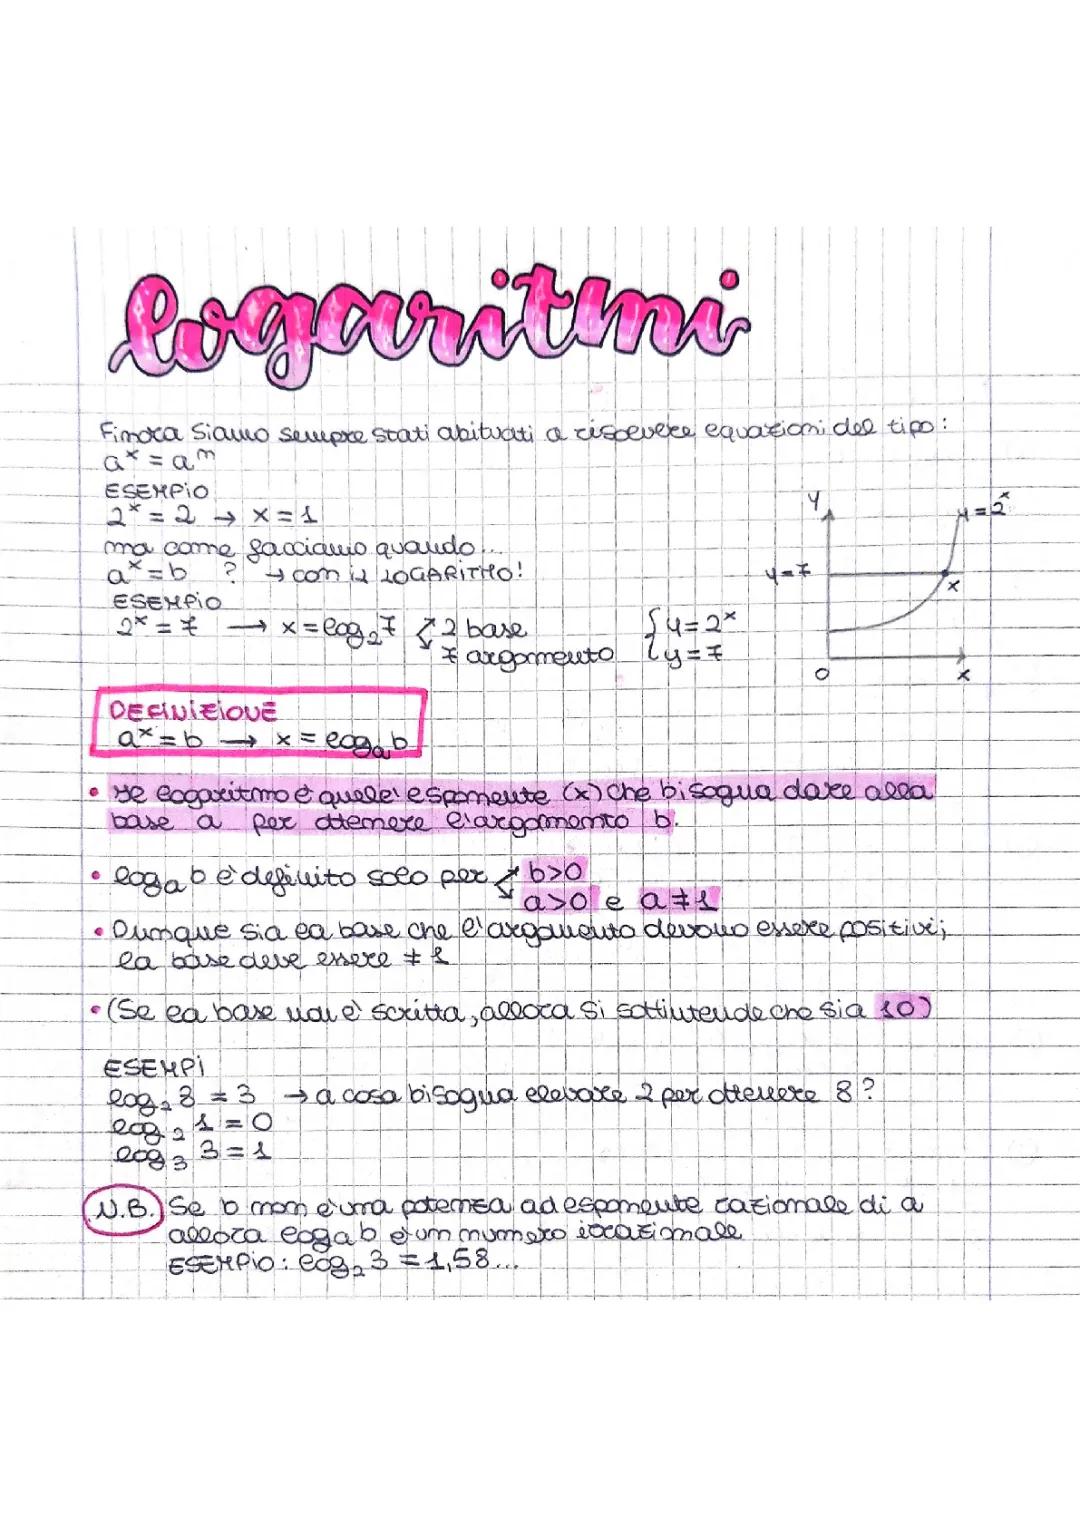 logaritmi
Finora siamo sempre stati abituati a risolvere equazioni del tipo:
aˣ = aⁿ
ESEMPIO
2ˣ = 2 → x = 1
ma come facciamo quando...
aˣ = b ? → con il LOGARITMO!
ESEMPIO
2ˣ = 7 → x = log₂7
2 base
7 argomento
{y = 2ˣ
y = 7
y
y = 2ˣ
y = 7
x
O
x
DEFINIZIONE
aˣ = b → x = logₐb
• Il logaritmo è quell'esponente (x) che bisogna dare alla
base a per ottenere l'argomento b.
• logₐb è definito solo per
b>0
a>0 e a≠1
• Dunque sia la base che l'argomento devono essere positivi;
la base deve essere ≠ 1
• (Se la base non è scritta, allora si sottintende che sia 10)
ESEMPI
log₂8 = 3 → a cosa bisogna elevare 2 per ottenere 8?
log₂1 = 0
log₃3 = 1
N.B. Se b non è una potenza ad esponente razionale di a
allora logₐb è un numero irrazionale
ESEMPIO: log₂3 = 1,58...